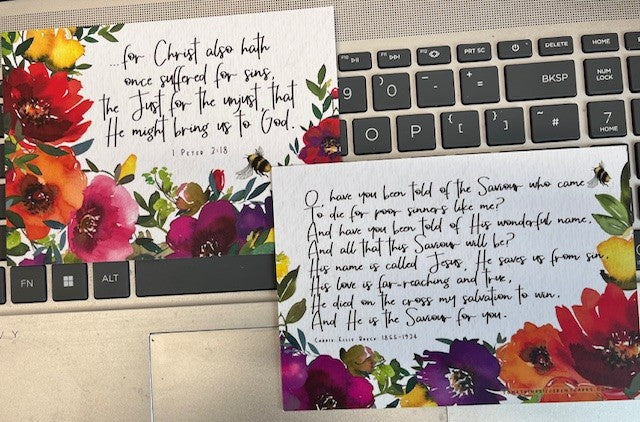 ...for Christ also hath
once suffered for sins,
the Just for the unjust, that
He might bring us to God.
1 Peter 3:18
O, have you been told of the Saviour who came
To die for poor sinners like me?
And have you been told of His wonderful name,
And all that this Saviour will be?
His name is called Jesus, He saves us from sin,
His love is far-reaching and true,
He died on the cross my salvation to win,
And He is the Saviour for you.
Carrie Ellis Breck 1855-1934
F10
F11
F12
PRT SC
DELETE
HOME
9
0
-
+
=
BKSP
NUM
LOCK
O
P
{
[
}
]
~
#
7
HOME
FN
ALT